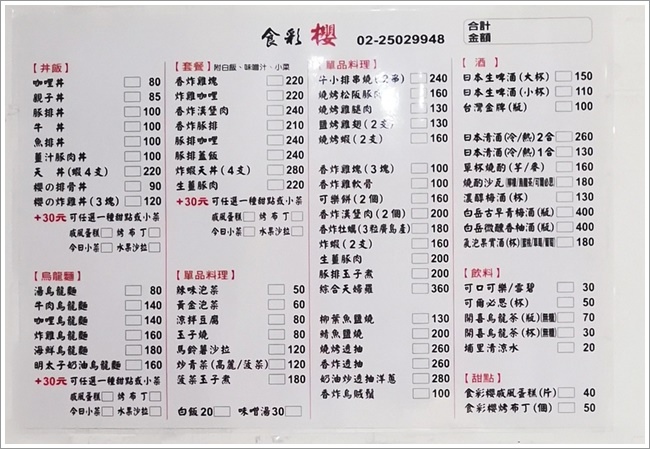 食彩 櫻 02-25029948
合計
金額
【丼飯】
咖哩丼 80
親子丼 85
豚排丼 100
牛 丼 100
魚排丼 100
薑汁豚肉丼 100
天 丼(蝦4支) 220
櫻の排骨丼 90
櫻の炸雞丼(3塊) 120
+30元 可任選一種甜點或小菜
戚風蛋糕 烤布丁
今日小菜 水果沙拉
【烏龍麵】
湯烏龍麵 80
牛肉烏龍麵 140
咖哩烏龍麵 140
炸雞烏龍麵 150
海鮮烏龍麵 180
明太子奶油烏龍麵 160
+30元 可任選一種甜點或小菜
戚風蛋糕 烤布丁
今日小菜 水果沙拉
【套餐】附白飯、味噌汁、小菜
香炸雞塊 220
炸雞咖哩 220
香炸漢堡肉 240
香炸豚排 210
豚排咖哩 240
豚排蓋飯 240
炸蝦天丼(4支) 280
生薑豚肉 220
+30元 可任選一種甜點或小菜
戚風蛋糕 烤布丁
今日小菜 水果沙拉
【單品料理】
辣味泡菜 50
黃金泡菜 60
涼拌豆腐 80
玉子燒 80
馬鈴薯沙拉 120
炒青菜(高麗/菠菜) 120
菠菜玉子燒 180
白飯20 味噌湯30
【單品料理】
牛小排串燒(2串) 240
燒烤松阪豚肉 160
燒烤雞腿肉 130
鹽烤雞翅(2支) 130
燒烤蝦(2支) 160
香炸雞塊(3塊) 100
香炸雞軟骨 100
可樂餅(2個) 160
香炸漢堡肉(2個) 200
香炸牡蠣(3粒廣島產) 180
炸蝦(2支) 160
生薑豚肉 100
豚排玉子煮 200
綜合天婦羅 360
柳葉魚鹽燒 130
鯖魚鹽燒 200
燒烤透抽 260
香炸透抽 260
奶油炒透抽洋蔥 280
香炸烏賊鬚 100
【酒】
日本生啤酒(大杯) 150
日本生啤酒(小杯) 110
台灣金牌(瓶) 100
日本清酒(冷/熱)2合 260
日本清酒(冷/熱)1合 130
單杯燒酌(芋/麥) 160
燒酌沙瓦 180
濃醇梅酒(杯) 130
白岳古早青梅酒(瓶) 400
白岳微醺香柚酒(瓶) 400
氣泡果實酒(杯) 180
【飲料】
可口可樂/雪碧 30
可爾必思(杯) 50
開喜烏龍茶(瓶) 70
開喜烏龍茶(杯) 30
埔里清涼水 20
【甜點】
食彩櫻戚風蛋糕(片) 40
食彩櫻烤布丁(個) 50